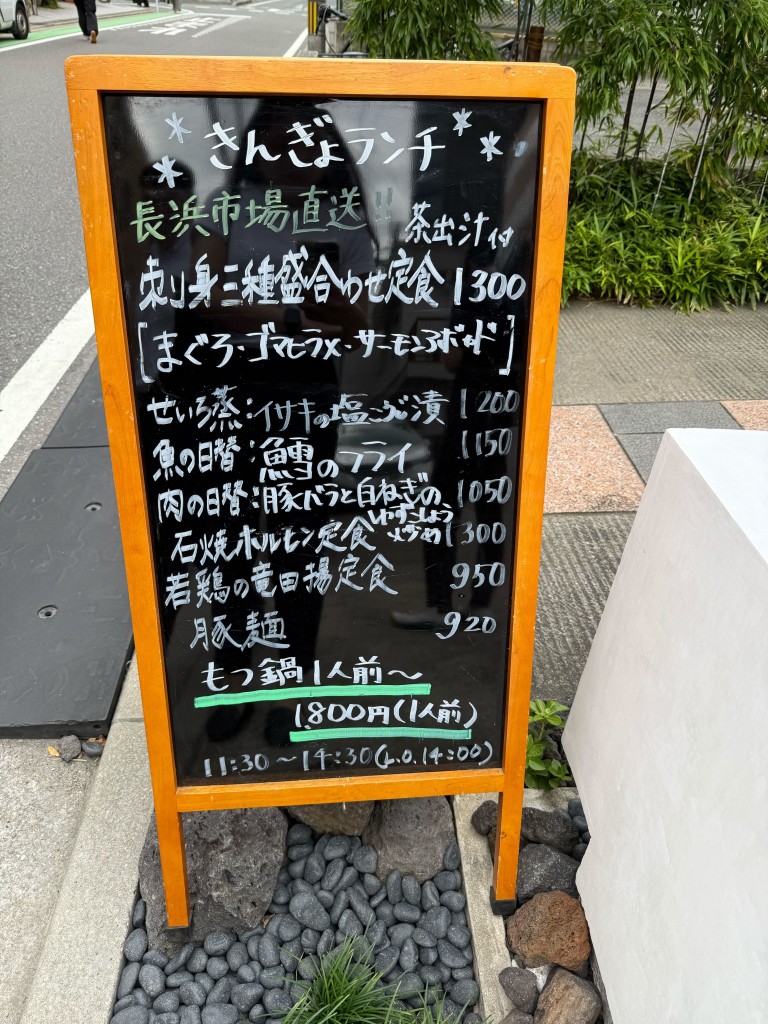 きんぎょランチ
長浜市場直送!!
茶出汁付
刺身三種盛合わせ定食 1300
[まぐろ・ゴマヒラ×・サーモンアボカド]
せいろ蒸:イサキの塩こうじ漬 1200
魚の日替:鱈のフライ 1150
肉の日替:豚バラと白ねぎの 1050
ゆずこしょう
炒め
石焼ホルモン定食 1300
若鶏の竜田揚定食 950
豚麺 920
もつ鍋1人前〜
1,800円(1人前)
11:30〜14:30(L.O.14:00)